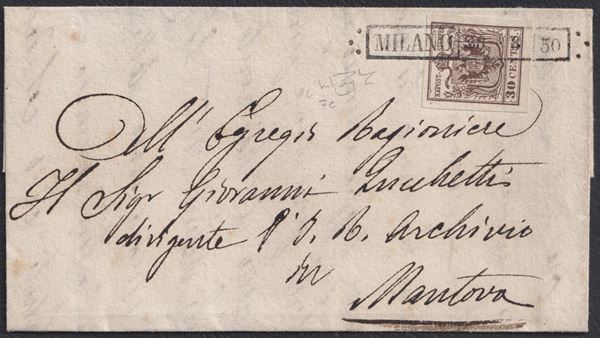 MILANO 50
30 CENTES.
7c
All' Egregio Ragioniere
Il Sigr Giovanni Lucchetti
dirigente l' I. R. Archivio
in
Mantova